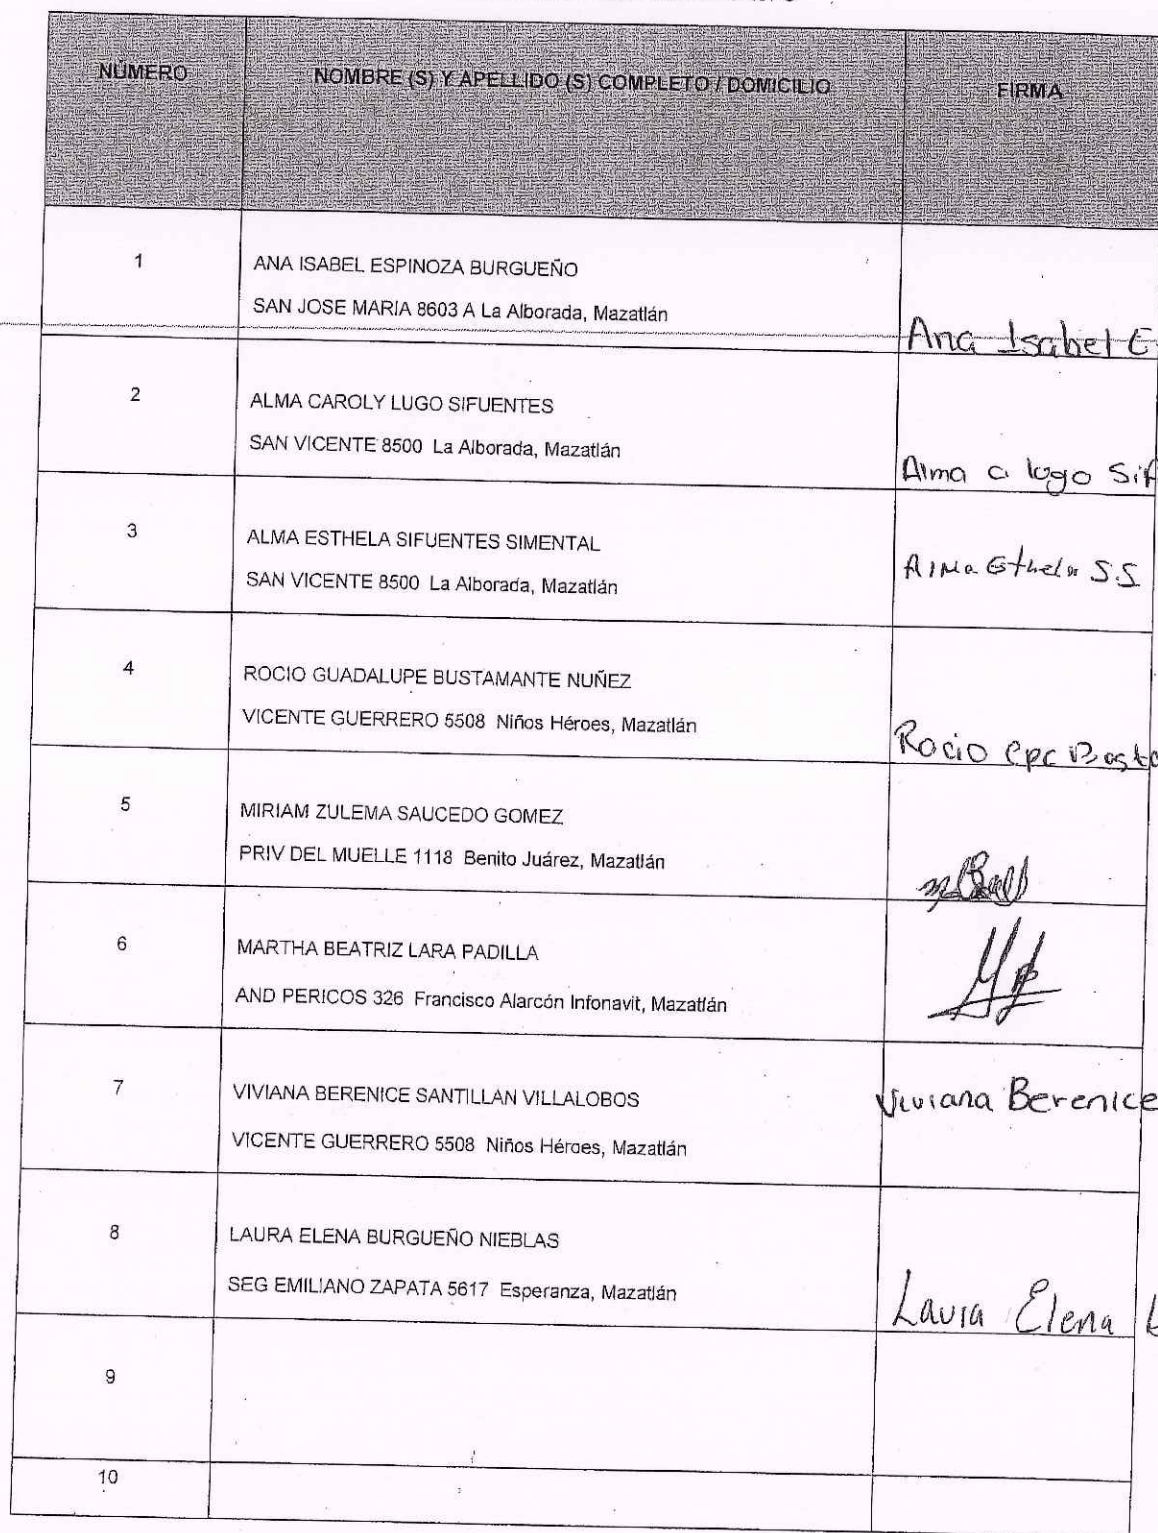 NÚMERO
NOMBRE (S) Y APELLIDO (S) COMPLETO / DOMICILIO
FIRMA
1
ANA ISABEL ESPINOZA BURGUEÑO
SAN JOSE MARIA 8603 A La Alborada, Mazatlán
Ana Isabel E
2
ALMA CAROLY LUGO SIFUENTES
SAN VICENTE 8500 La Alborada, Mazatlán
Alma c lugo Sif
3
ALMA ESTHELA SIFUENTES SIMENTAL
SAN VICENTE 8500 La Alborada, Mazatlán
Alma Esthela S.S
4
ROCIO GUADALUPE BUSTAMANTE NUÑEZ
VICENTE GUERRERO 5508 Niños Héroes, Mazatlán
Rocio
5
MIRIAM ZULEMA SAUCEDO GOMEZ
PRIV DEL MUELLE 1118 Benito Juárez, Mazatlán
6
MARTHA BEATRIZ LARA PADILLA
AND PERICOS 326 Francisco Alarcón Infonavit, Mazatlán
7
VIVIANA BERENICE SANTILLAN VILLALOBOS
VICENTE GUERRERO 5508 Niños Héroes, Mazatlán
Viviana Berenice
8
LAURA ELENA BURGUEÑO NIEBLAS
SEG EMILIANO ZAPATA 5617 Esperanza, Mazatlán
Laura Elena
9
10